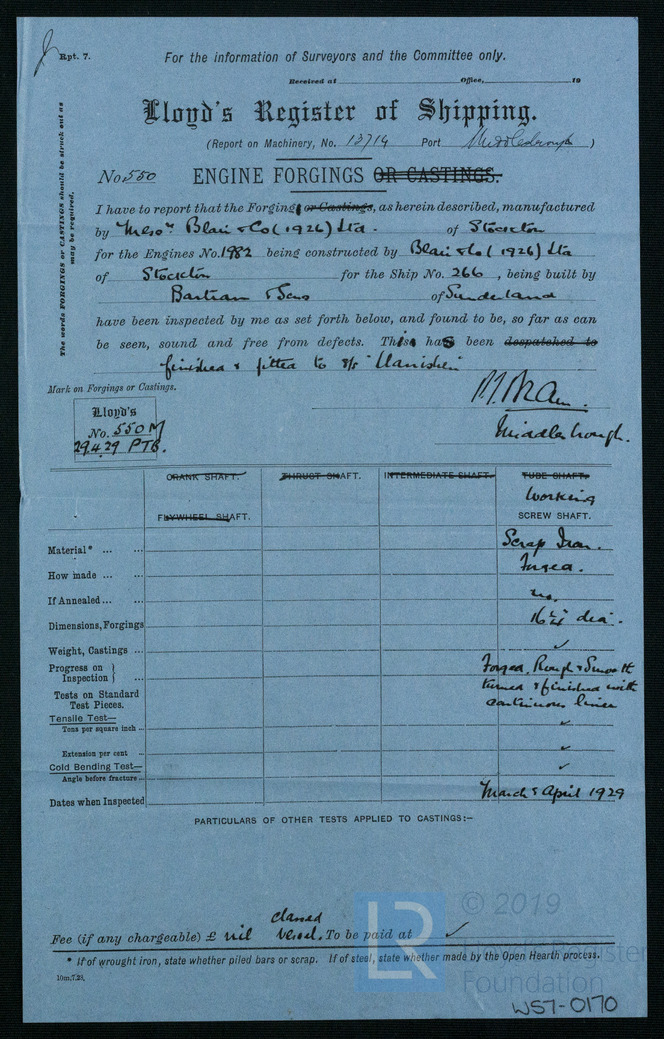 Rpt. 7.
For the information of Surveyors and the Committee only.
Received at Office, 19
Lloyd's Register of Shipping.
(Report on Machinery, No. 13714 Port Middlesbrough )
No 550 ENGINE FORGINGS OR CASTINGS.
The words FORGINGS or CASTINGS should be struck out as may be required.
I have to report that the Forging or Castings, as herein described, manufactured
by Messrs Blair & Co (1926) Ltd. of Stockton
for the Engines No. 1982 being constructed by Blair & Co (1926) Ltd
of Stockton for the Ship No. 266, being built by
Bartram & Sons of Sunderland
have been inspected by me as set forth below, and found to be, so far as can
be seen, sound and free from defects. This has been despatched to
finished & fitted to s/s
Mark on Forgings or Castings.
Lloyd's
No. 550 M
29.4.29 PTB.
Middlesbrough.
CRANK SHAFT. THRUST SHAFT. INTERMEDIATE SHAFT. TUBE SHAFT.
Working
FLYWHEEL SHAFT. SCREW SHAFT.
Material* ... ... Scrap Iron.
How made ... ... Forged.
If Annealed ... ... no.
Dimensions, Forgings dia.
Weight, Castings ... ✓
Progress on Inspection } Forged, Rough & Smooth
turned & finished with
continuous liner
Tests on Standard
Test Pieces.
Tensile Test—
Tons per square inch ... ✓
Extension per cent ... ✓
Cold Bending Test— ✓
Angle before fracture ...
Dates when Inspected March & April 1929
PARTICULARS OF OTHER TESTS APPLIED TO CASTINGS:—
classed
Fee (if any chargeable) £ nil Vessel. To be paid at ✓
* If of wrought iron, state whether piled bars or scrap. If of steel, state whether made by the Open Hearth process.
10m,7.23.
© 2019
LR
Lloyd's Register
Foundation
W57-0170